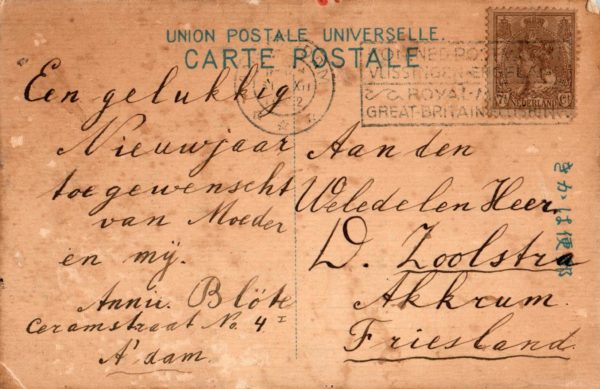 UNION POSTALE UNIVERSELLE.
CARTE POSTALE
Een gelukkig
Nieuwjaar
toegewenscht
van Moeder
en mij.
Annie Blöte
Ceramstraat No. 4 I
A'dam.
VLISSINGEN
ROYAL
GREAT-BRITAIN
NEDERLAND
Aan den
Weledelen Heer
D. Zoolstra
Akkrum.
Friesland.
きかは便郵